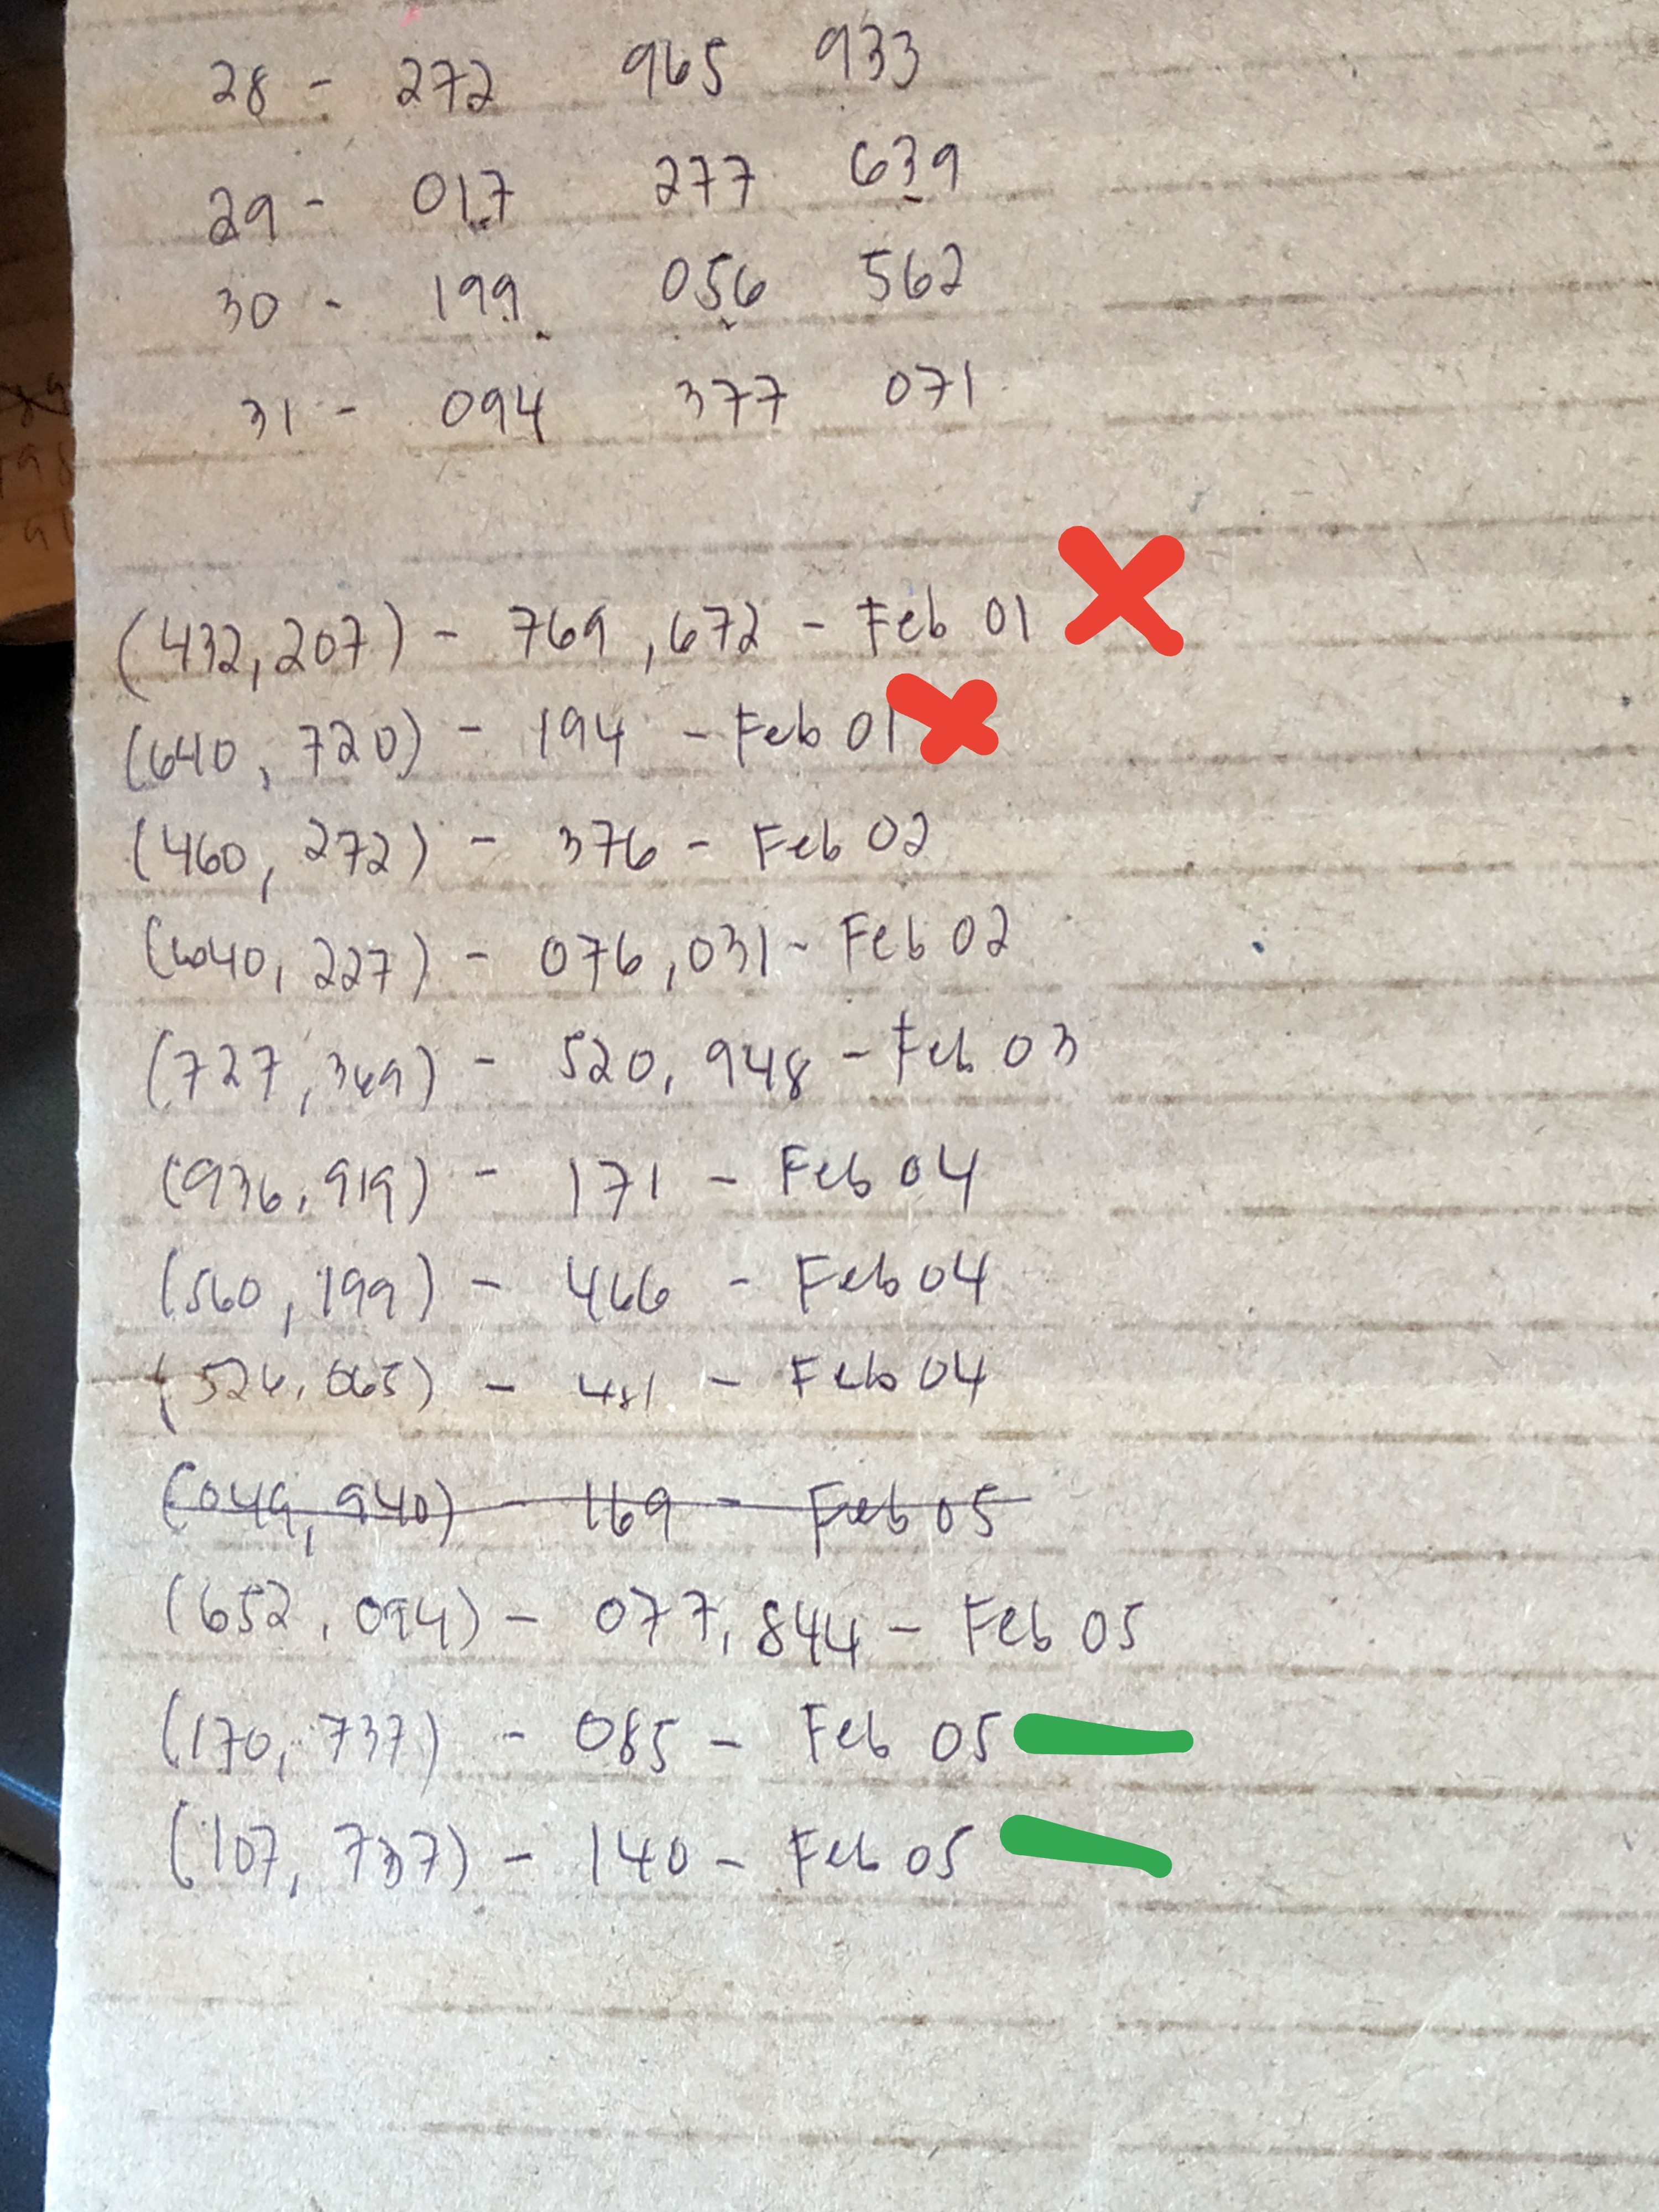 28 - 272 965 933
29 - 017 277 639
30 - 199 056 562
31 - 094 377 071
(432,207) - 769,672 - Feb 01
(640, 720) - 194 - Feb 01
(460, 272) - 376 - Feb 02
227) - 076,031 - Feb 02
(727,369) - 520, 948 - Feb 03
(936,919) - 171 - Feb 04
(560,199) - 466 - Feb 04
(526,065) - 481 - Feb 04
(049,940) - 169 - Feb 05
(652,094) - 077,844 - Feb 05
(170, 737) - 085 - Feb 05
(107, 737) - 140 - Feb 05